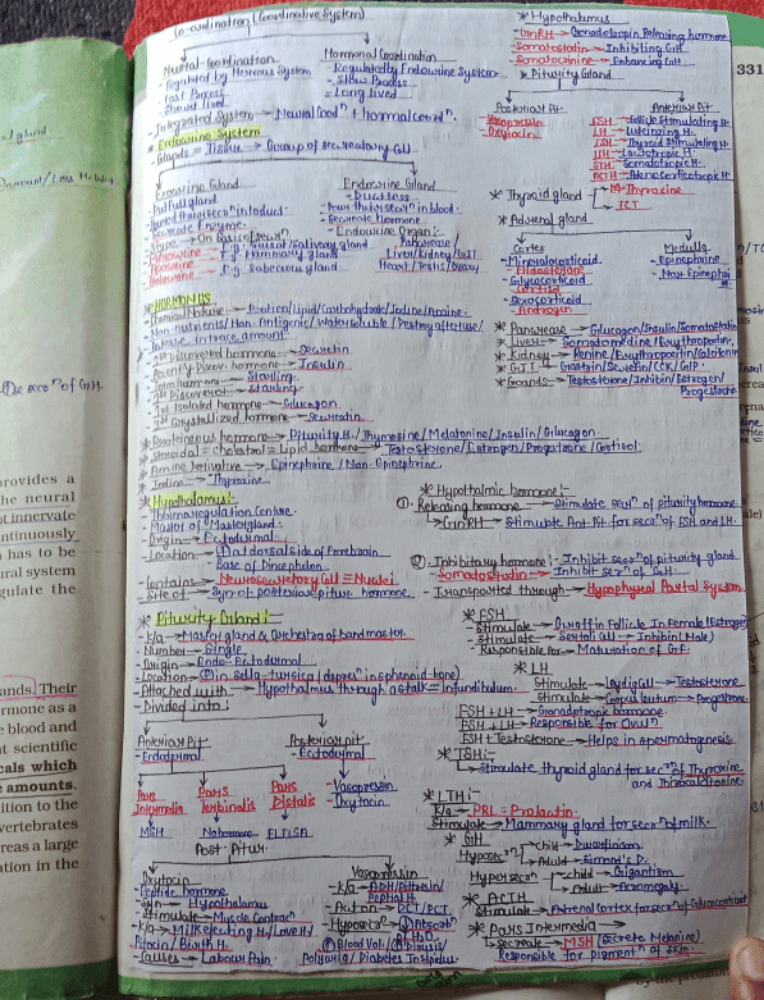 Co-ordination (Coordinative System)
Neural-Coordination
- Regulated by Nervous System
- Fast Process
- Short lived
Hormonal Coordination
- Regulated by Endocrine System
- Slow Process
- Long lived
- Integrated System → Neural Coordn + hormonal coordn.
* Endocrine System
- Glands = Tissue → Group of secreatory Cell
Exocrine Gland
Endocrine Gland
- Ductless
- Pour their secrn in blood.
- Secreate hormone
- Secreate Enzyme.
- Endocrine Organ:-
Pancrease/
Liver/Kidney/GIT
Heart/Testis/Ovary
- Type → On basis of secrn
E.g. Sweat/Salivary gland
E.g. Mammary gland
E.g. Sabecious gland
* HORMONES
- Chemical Nature → Protien/Lipid/Carbohydrate/Iodine/Amine.
- Non-nutrients/Non-Antigenic/Water soluble/Destroy after use/
in trace amount
- 1st Discovered hormone → Secretin
- Recently Discov. hormone → Insulin
- Term hormone → Starling
- 1st Discovered → Starling
- 1st Isolated hormone → Glucagon
- 1st Crystallized hormone → Secreatin
* Proteineous hormone → Pituirity H./Thymosine/Melatonine/Insulin/Glucagon.
* Steroidal = Cholestrol = Lipid hormone → Testosterone/Estrogen/Progestrone/Cortisol.
* Amine Derivative → Epinephrine/Non-Epinephrine.
* Iodine → Thyroxine
* Hypothalamus:-
- Thermoregulation Centre.
- Master of Mastergland.
- Origin → Ectodermal
- Location → ① at dorsal side of Forebrain
- Base of Diencephlon
- Contains → Neurosecretory Cell = Nuclei
- Site of → Syn of posterior pitur. hormone.
* Pituirity Gland:-
- K/a → Master gland & Orchestra of band master.
- Number → Single
- Origin → Endo-Ectodermal
- Location → ① in sella-tursica (depresn in sphenoid-bone)
- Attached with → Hypothalmus through a stalk = Infundibulum.
- Divided into:
Anteriar Pit.
- Endodermal
Posteriar pit
- Ectodermal
- Vasopressin
- Oxytocin
Pars Intermedia
Pars Terbinalis
Pars Distalis
MSH
No hormone
Post. Pitur.
Oxytocin
- Peptide hormone
- Syn → Hypothalamus
- Stimulate → Muscle Contracn
- K/a → Milk ejecting H./Love H./
Pitocin/Birth H.
- Causes → Labour Pain.
Vasopressin
- K/a → ADH/Pitresin/
Peptial H.
- Action → DCT/PCT
- Hyposecrn → Absorbn
of H2O
Blood Vol./Diuresis/
Polyuria/Diabetes Insipidus
* Hypothalamus
- GnRH → Gonadotropin Releasing hormone
- Somatostatin → Inhibiting GH.
- Somatocrinine → Enhancing GH
* Pituirity Gland
Posteriar Pit.
- Vasopressin
- Oxytocin
Anteriar Pit
FSH → Follicle Stimulating H.
LH → Luteinzing H.
TSH → Thyroid Stimulating H.
LTH → Lactotropic H.
STH → Somatotropic H.
ACTH → Adenocorticotropic H.
* Thyroid gland
Thyroxine
TCT
* Adrenal gland
Cortex
- Mineralocorticoid.
- Aldosterone
- Glycocorticoid
- Cortisol
- Sexocorticoid
- Androgen
Medulla
- Epinephrine
* Pancrease → Glucagon/Insulin/Somatostatin
* Liver → Somatomedine/Erythropoetin.
* Kidney → Renine/Erythropoertin/Calcitonin
* GIT → Gastrin/Secretin/CCK/GIP.
* Gonands → Testosterone/Inhibin/Estrogen/
Progestrone
* Hypothalmic hormone:-
①. Releasing hormone → Stimulate secrn of piturity hormone.
→ GnRH → Stimulate Ant. Pit for secrn of FSH and LH.
②. Inhibitary hormone:- Inhibit secrn of piturity gland
- Somatostatin → Inhibit secrn of GH.
- Transported through → Hypophyseal Portal System
* FSH
- Stimulate → Growth in Follicle In Female (Estrogen)
- Stimulate → Sertoli Cell → Inhibin (Male)
- Responsible for → Maturation of G.F.
* LH
Stimulate → Leydig Cell → Testosterone.
Stimulate → Corpus leutum → Progestrone.
FSH + LH → Gonadotropic hormone
FSH + LH → Responsible for Ovuln
FSH + Testosterone → Helps in spermatogenesis.
* TSH:-
→ Stimulate thyroid gland for secrn of Thyroxine
* LTH:-
K/a → PRL = Prolactin.
Stimulate → Mammary gland for secrn of milk.
* GH
Hyposecrn
Child → Dwarfinism
Aduld → Simond's D.
Hypersecrn
Child → Gigantism
Adult → Acromegaly.
* ACTH
Stimulate → Adrenal Cortex for secrn of Glucocorticoid
* Pars Intermedia
→ Secreate → MSH (Secrete Melanine)
Responsible for Pigmentn of Skin.
331
provides a
the neural
ot innervate
ntinuously
has to be
ural system
gulate the
ands. Their
rmone as a
e blood and
nt scientific
cals which
e amounts.
ition to the
vertebrates
reas a large
ation in the